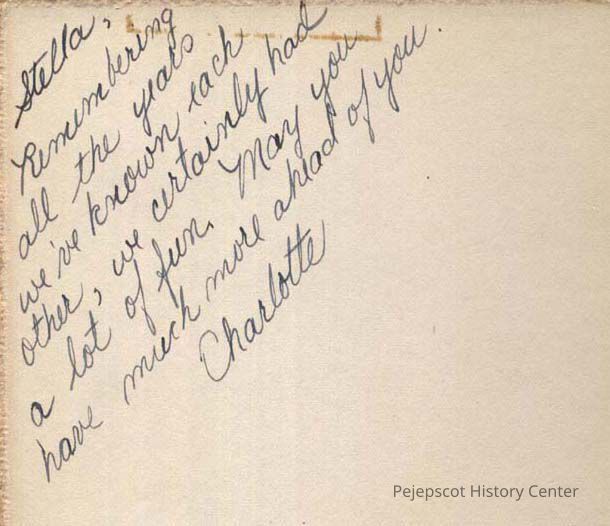 Stella,
Remembering
all the years
we've known each
other, we certainly had
a lot of fun. May you
have much more ahead of you.
Charlotte
Pejepscot History Center